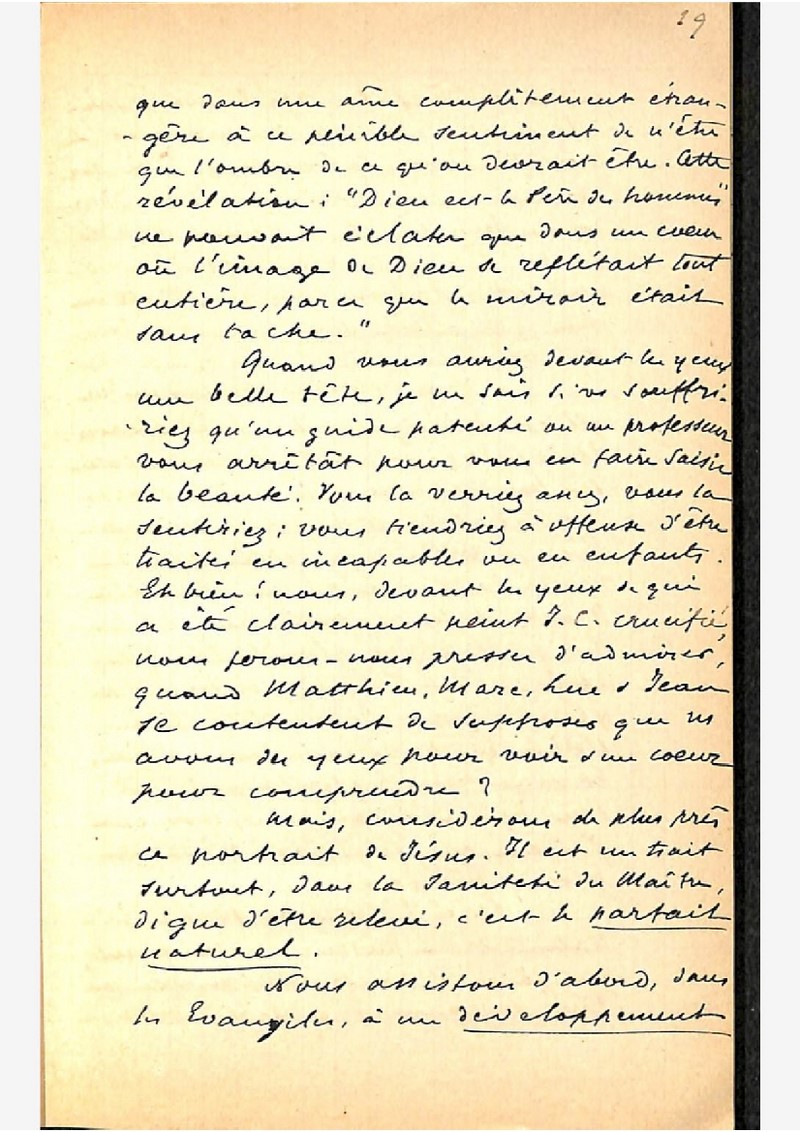 29
que dans une âme complètement étran-
-gère à ce pénible sentiment de n'être
que l'ombre de ce qu'on devrait être. Cette
révélation : "Dieu est le Père des hommes"
ne pouvait éclater que dans un coeur
où l'image de Dieu se reflétait tout
entière, parce que le miroir était
sans tache."
Quand vous auriez devant les yeux
une belle tête, je ne sais si vs souffri-
-riez qu'un guide patenté ou un professeur
vous arrêtât pour vous en faire saisir
la beauté. Vous la verriez assez, vous la
sentiriez ; vous tiendriez à offense d'être
traités en incapables ou en enfants.
Eh bien ! nous, devant les yeux de qui
a été clairement peint J. C. crucifié,
nous ferons-nous presser d'admirer,
quand Matthieu, Marc, Luc & Jean
se contentent de supposer que ns
avons des yeux pour voir & un coeur
pour comprendre ?
Mais, considérons de plus près
ce portrait de Jésus. Il est un trait
surtout, dans la sainteté du Maître,
digne d'être relevé, c'est le parfait
naturel.
Nous assistons d'abord, dans
les Evangiles, à un développement